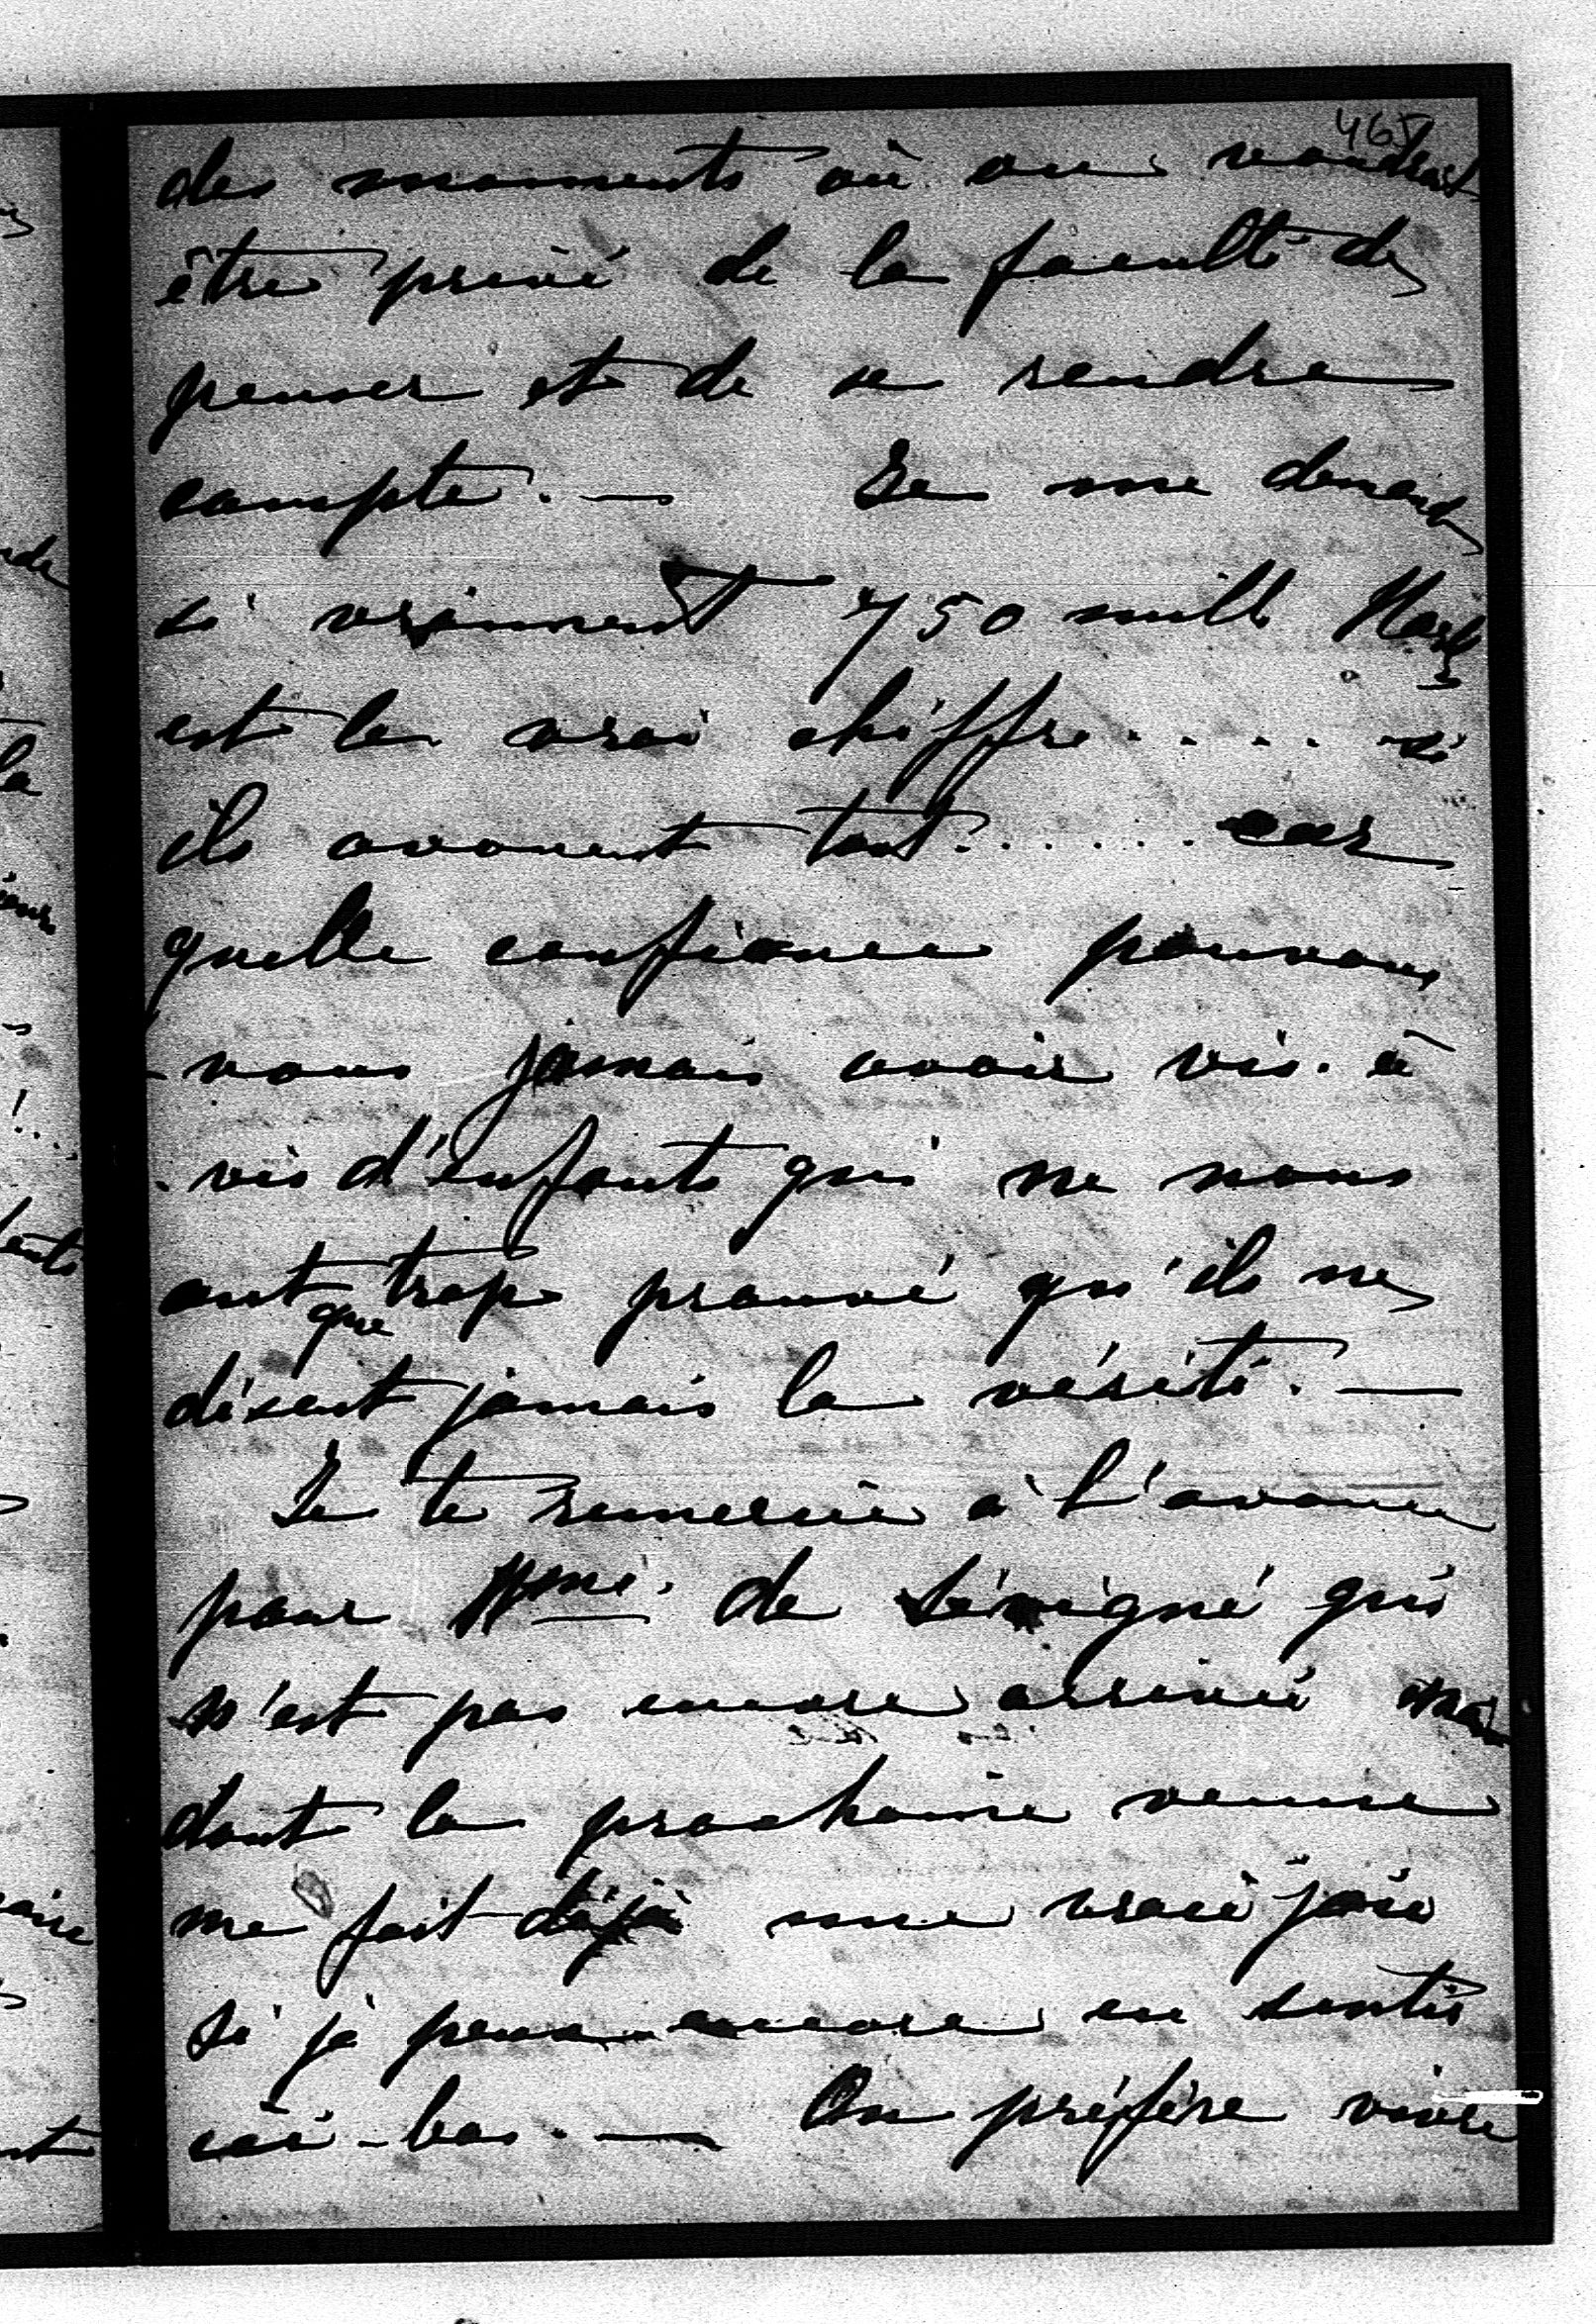 465
des moments où on voudrait
être privé de la faculté de
penser et de se rendre
compte. — Je me demand
si vraiment 750 mille Mark
est le vrai chiffre..... si
ils avouent tout...... car
quelle confiance pouvons
-nous jamais avoir vis-à
-vis d'enfants qui ne nous
ont que trop prouvé qu'ils ne
disent jamais la vérité. —
Je te remercie à l'avance
pour Mme. de Sévigné qui
n'est pas encore arrivée mais
dont la prochaine venue
me fait déjà une vraie joie
si je peux encore en sentir
ici-bas. — On préfère vivre